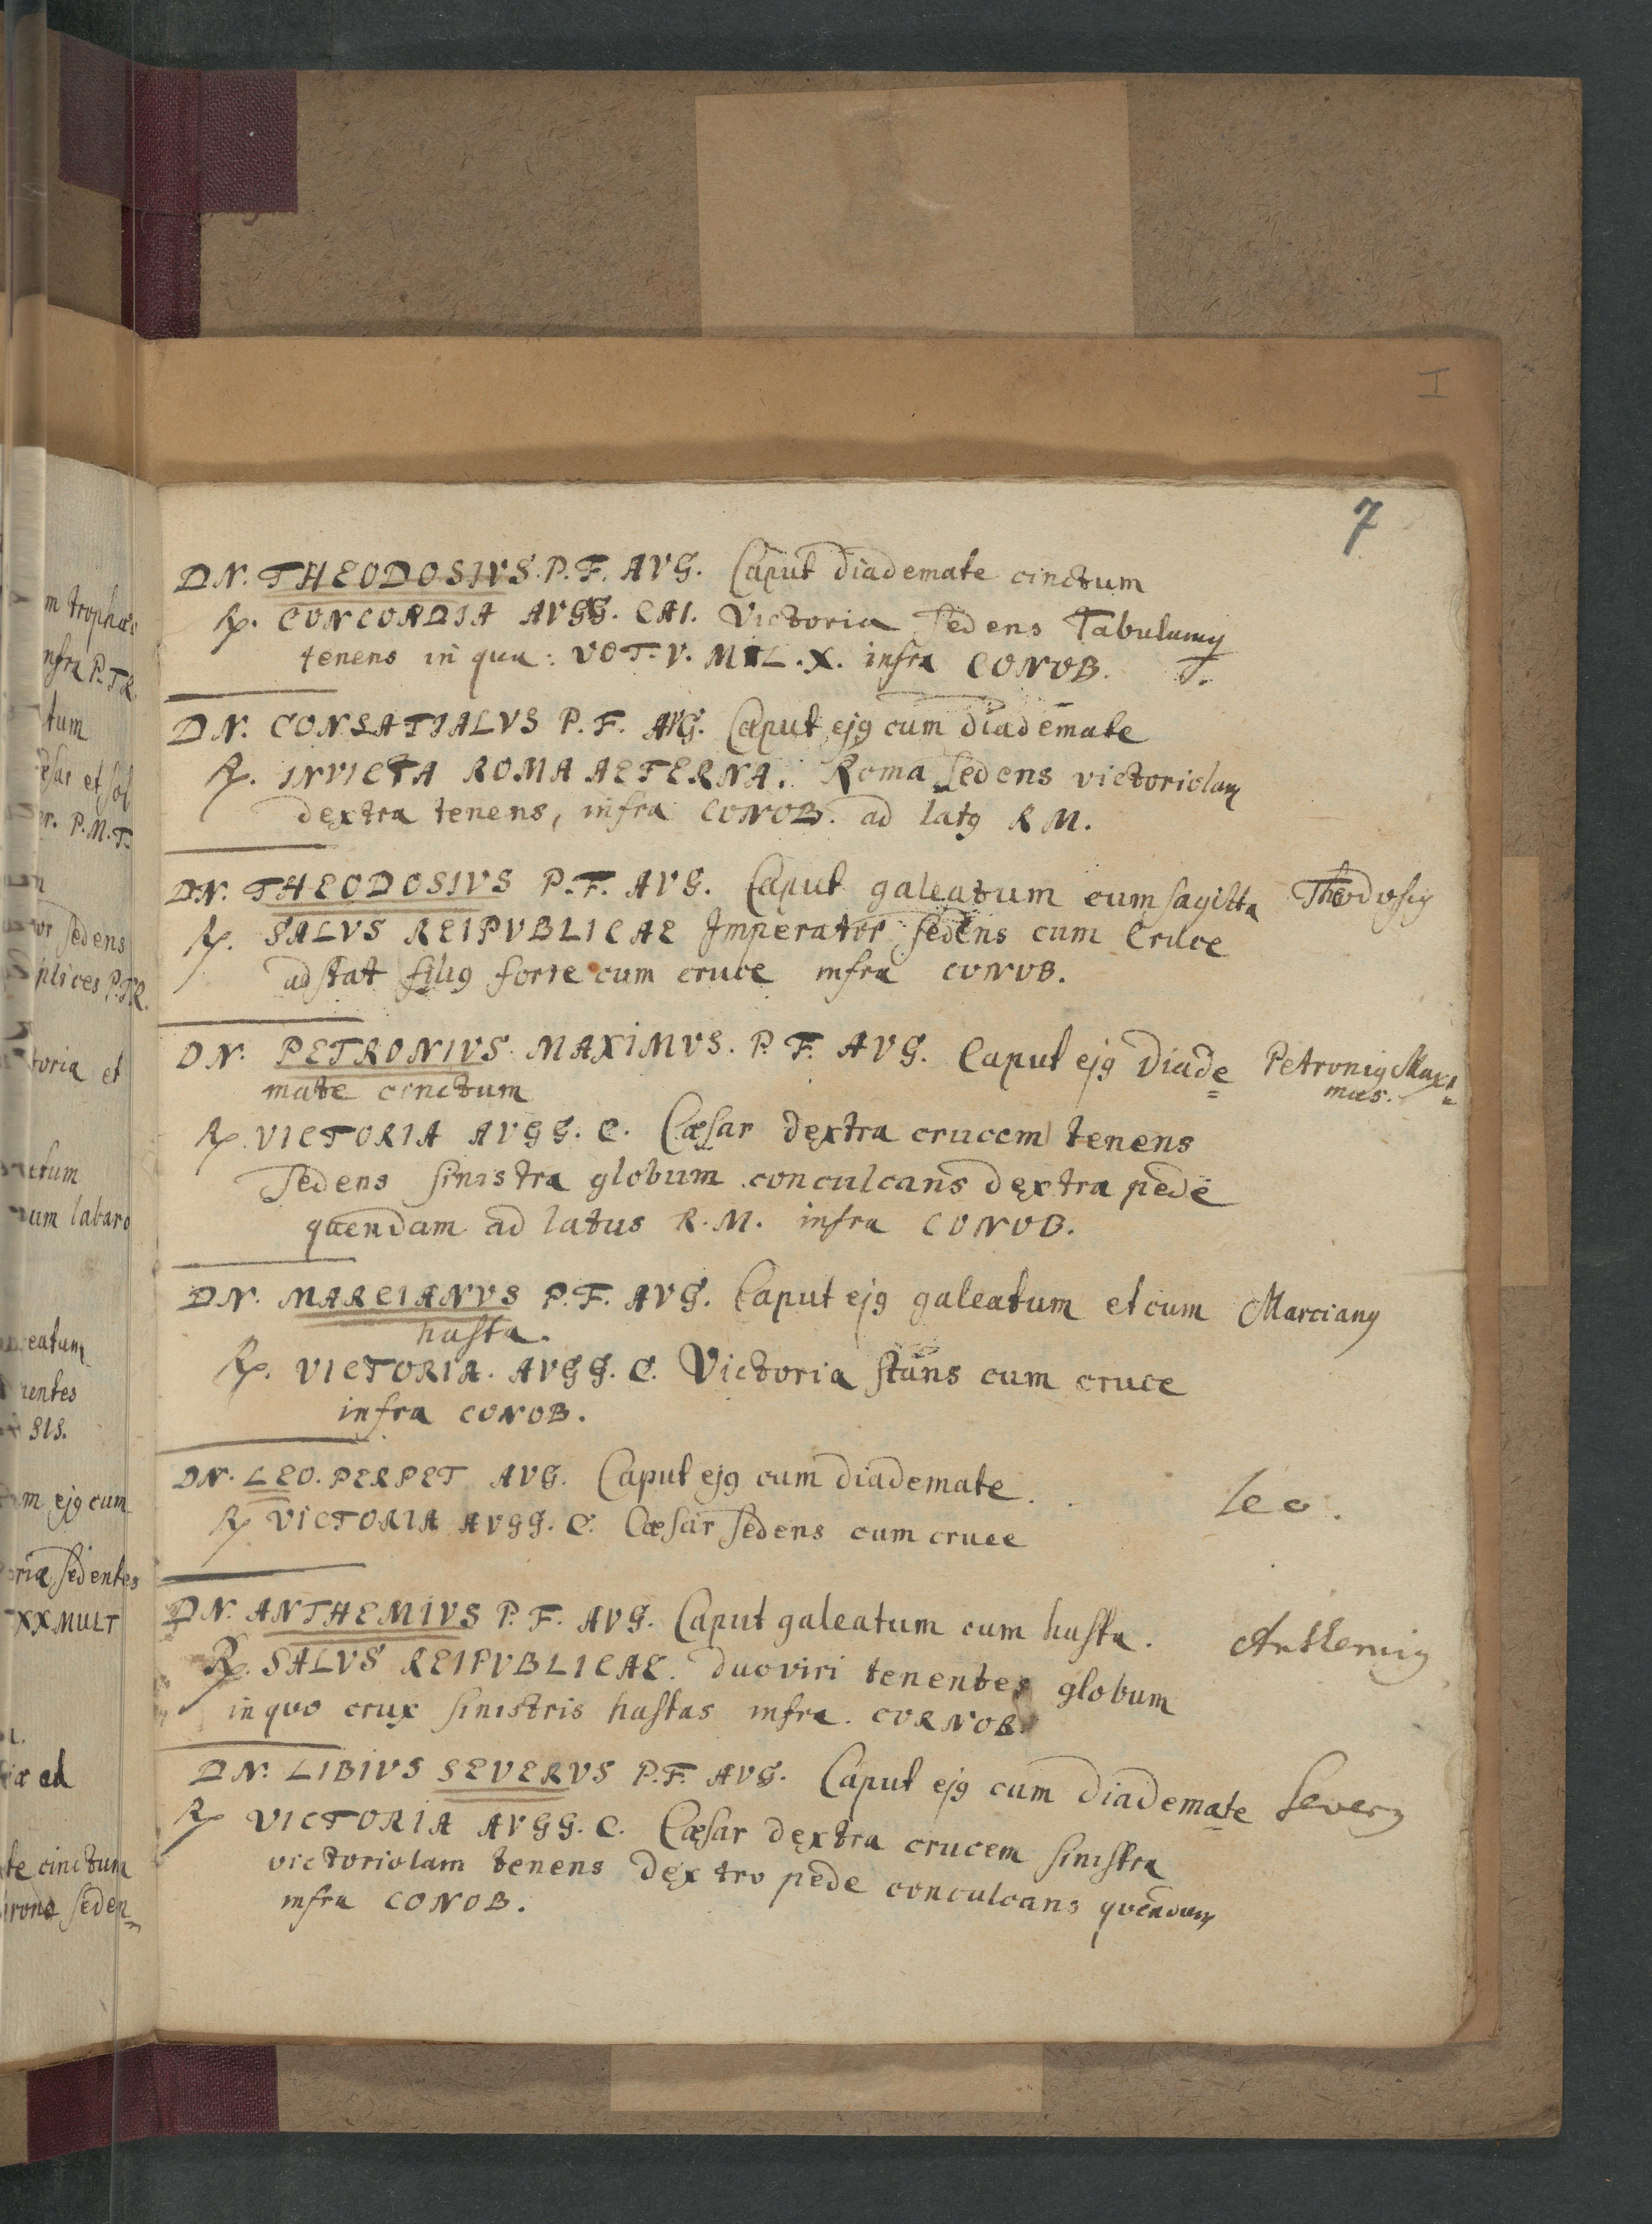 I
7
DN. THEODOSIVS. P. F. AVG. Caput diademate cinctum
R. CONCORDIA AVGG. CAI. Victoria sedens Tabulam
tenens in qua: VOT. V. MVL. X. infra CONOB. T.
DN. CONSATIALVS P. F. AVG. Caput ej9 cum diademate
R. INVICTA ROMA AETERNA. Roma sedens victoriolam
dextra tenens, infra CONOB. ad lat9 R M.
DN. THEODOSIVS P. F. AVG. Caput galeatum cum sagitta Theodosi9
R. SALVS REIPVBLICAE Imperator sedens cum Cruce
adstat fili9 forte cum cruce infra CONOB.
DN. PETRONIVS. MAXIMVS. P. F. AVG. Caput ej9 diade= Petroni9 Maxi=
mate cinctum mus.
R. VICTORIA AVGG. C. Cæsar dextra crucem tenens
sedens sinistra globum conculcans dextra pede
quendam ad latus R. M. infra CONOB.
DN. MARCIANVS P. F. AVG. Caput ej9 galeatum et cum Marcian9
hasta.
R. VICTORIA. AVGG. C. Victoria stans cum cruce
infra CONOB.
DN. LEO. PERPET AVG. Caput ej9 cum diademate. Leo.
R VICTORIA AVGG. C. Cæsar sedens cum cruce
DN. ANTHEMIVS P. F. AVG. Caput galeatum cum hasta. Anthemi9
R. SALVS REIPVBLICAE. duo viri tenentes globum
in quo crux sinistris hastas infra. CORNOB.
DN. LIBIVS SEVERVS P. F. AVG. Caput ej9 cum diademate Sever9
R VICTORIA AVGG. C. Cæsar dextra crucem sinistra
victoriolam tenens dextro pede conculcans quendam
infra CONOB.